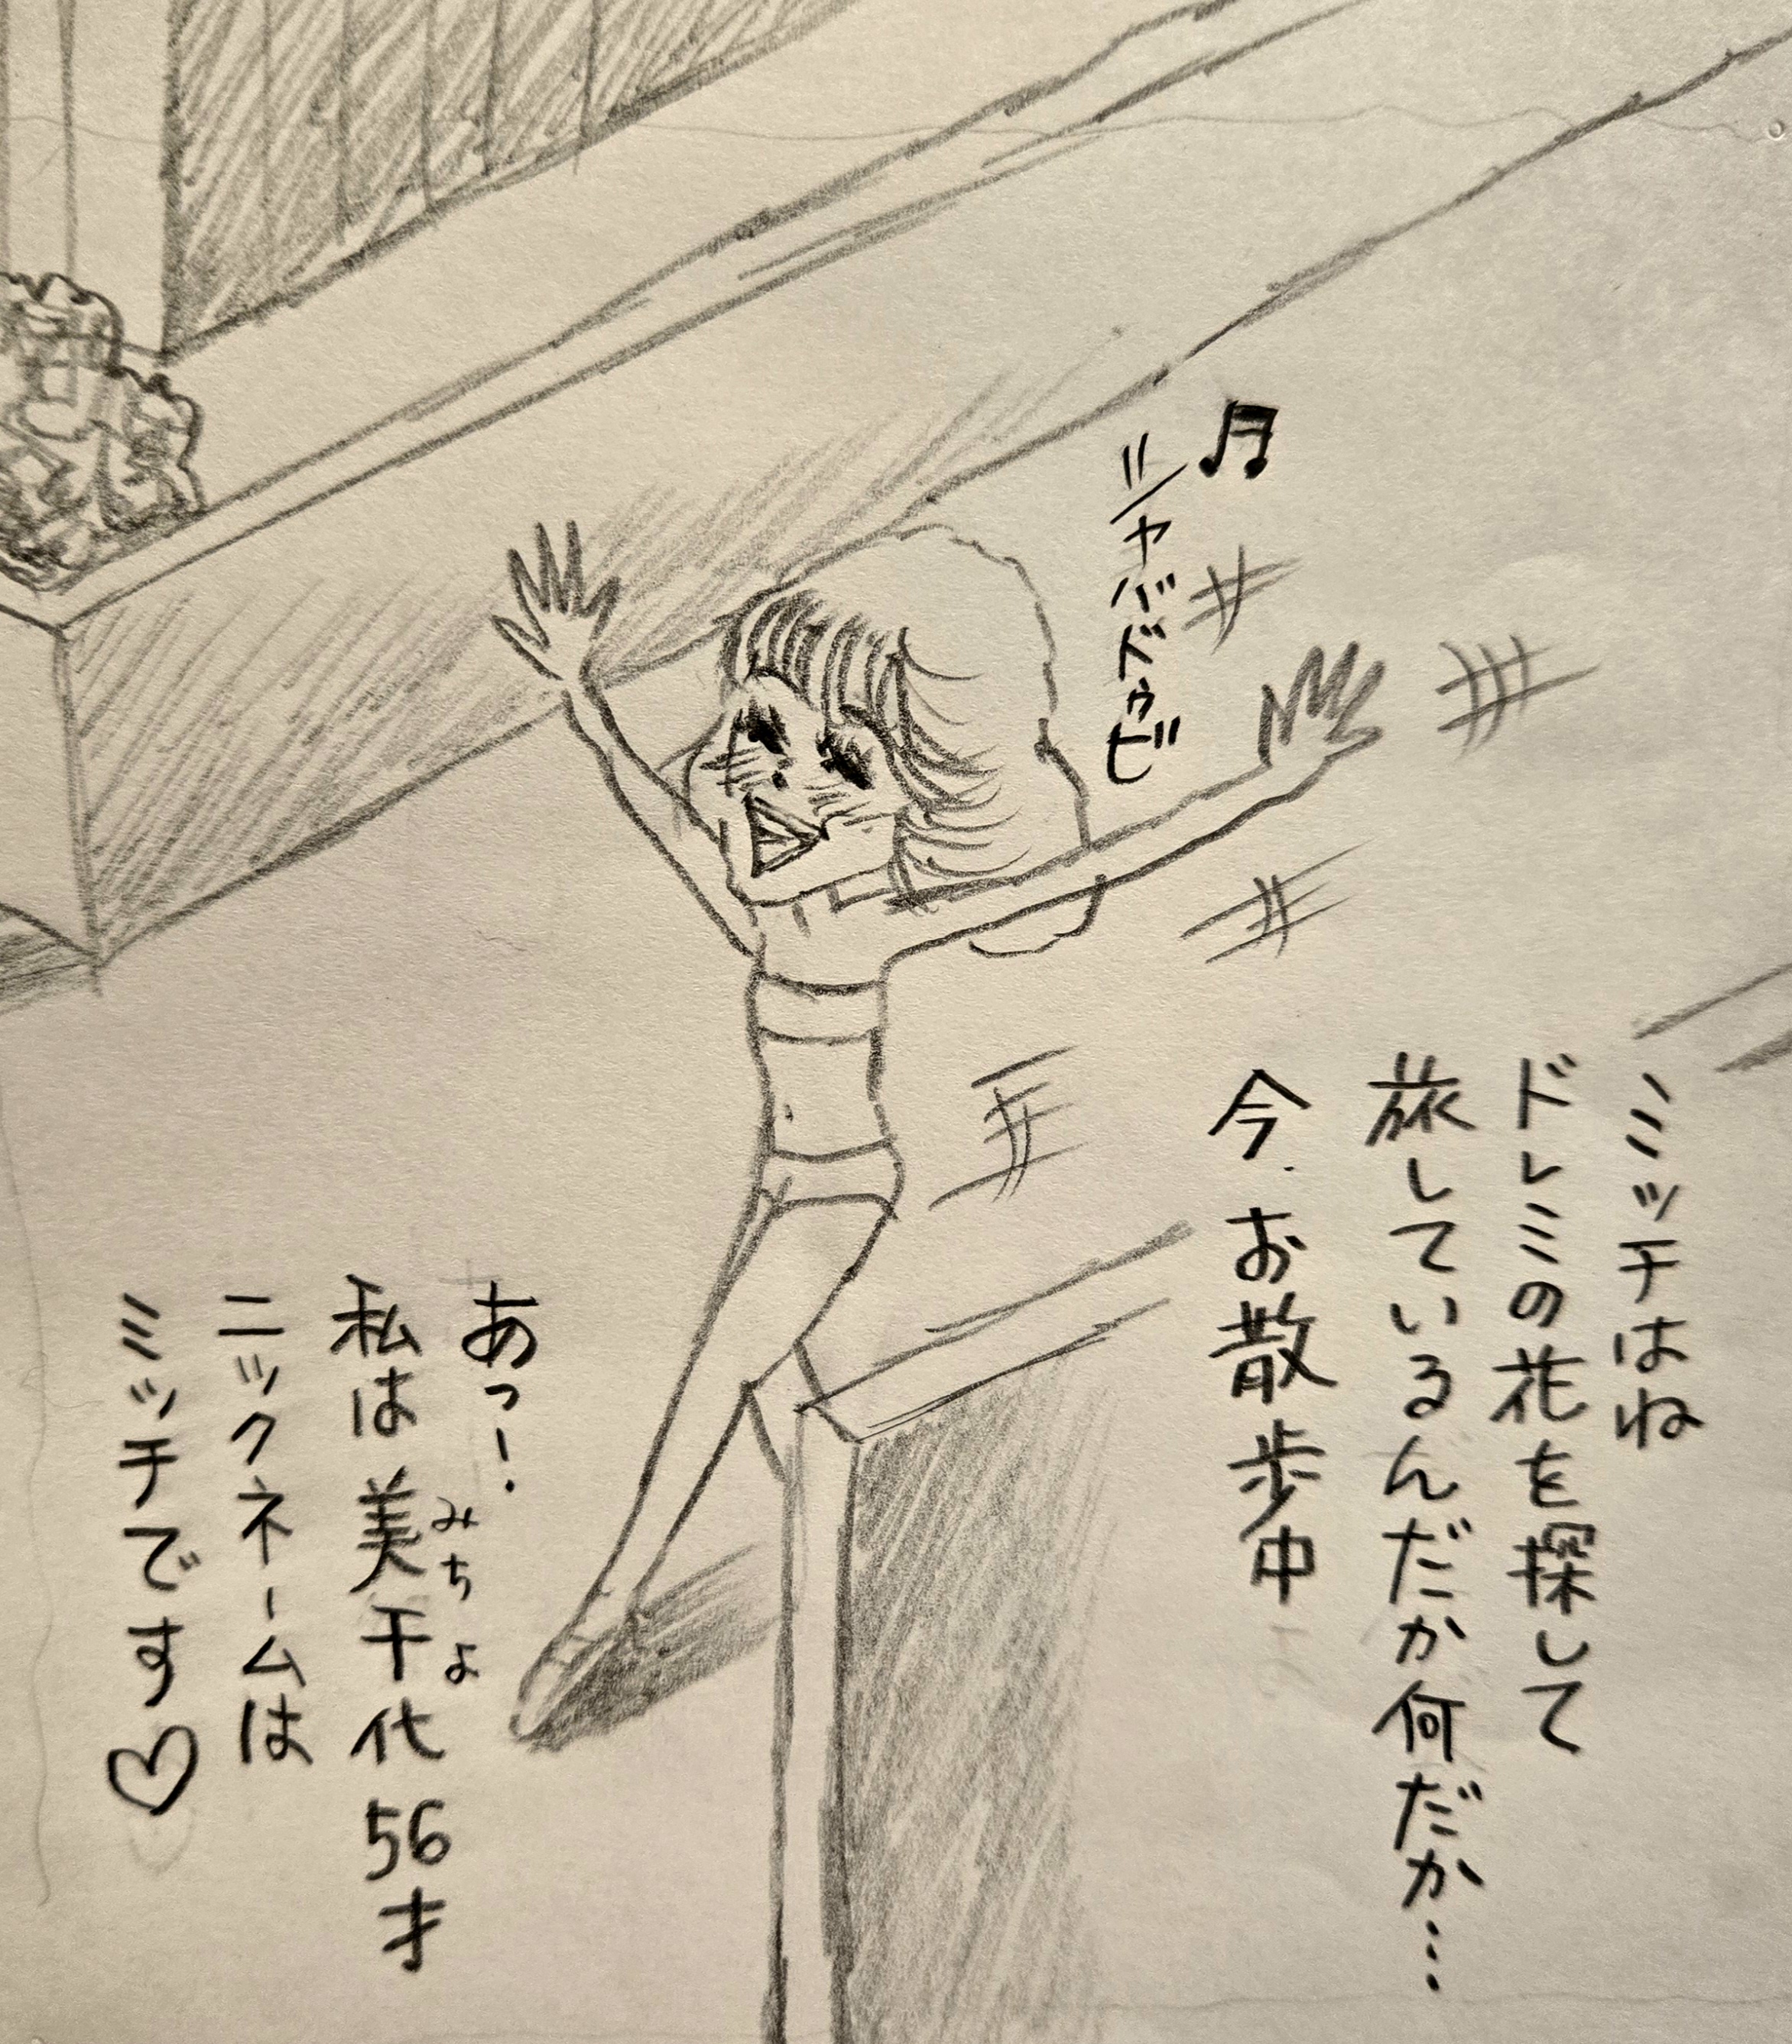 ♬シャバドゥビ
ミッチはね
ドレミの花を探して
旅しているんだか何だか…
今、お散歩中
あっ!
私は美千代56才
みちよ
ニックネームは
ミッチです♡